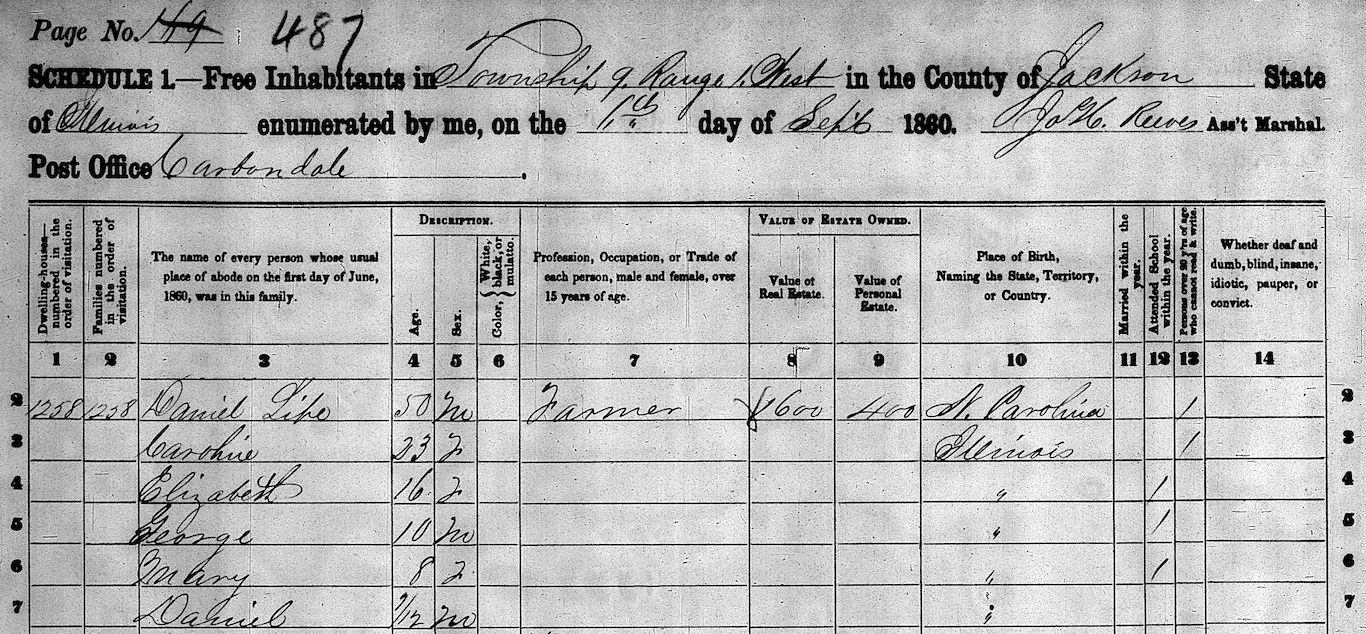 Page No. 119 487
SCHEDULE 1.—Free Inhabitants in Township 9. Range 1. West in the County of Jackson State
of Illinois enumerated by me, on the 1th day of Sept 1860. Reeves Ass't Marshal.
Post Office Carbondale.
Dwelling-houses—numbered in the order of visitation.
Families numbered in the order of visitation.
The name of every person whose usual place of abode on the first day of June, 1860, was in this family.
DESCRIPTION.
Age.
Sex.
Color, { White, black, or mulatto.
Profession, Occupation, or Trade of each person, male and female, over 15 years of age.
VALUE OF ESTATE OWNED.
Value of Real Estate.
Value of Personal Estate.
Place of Birth, Naming the State, Territory, or Country.
Married within the year.
Attended School within the year.
Persons over 20 y'rs of age who cannot read & write.
Whether deaf and dumb, blind, insane, idiotic, pauper, or convict.
1 2 3 4 5 6 7 8 9 10 11 12 13 14
2 1258 1258 Daniel Lipe 50 m Farmer 1600 400 N. Carolina / 2
3 Caroline 23 f Illinois / 3
4 Elizabeth 16 f " / 4
5 George 10 m " / 5
6 Mary 8 f " / 6
7 Daniel 9/12 m " 7